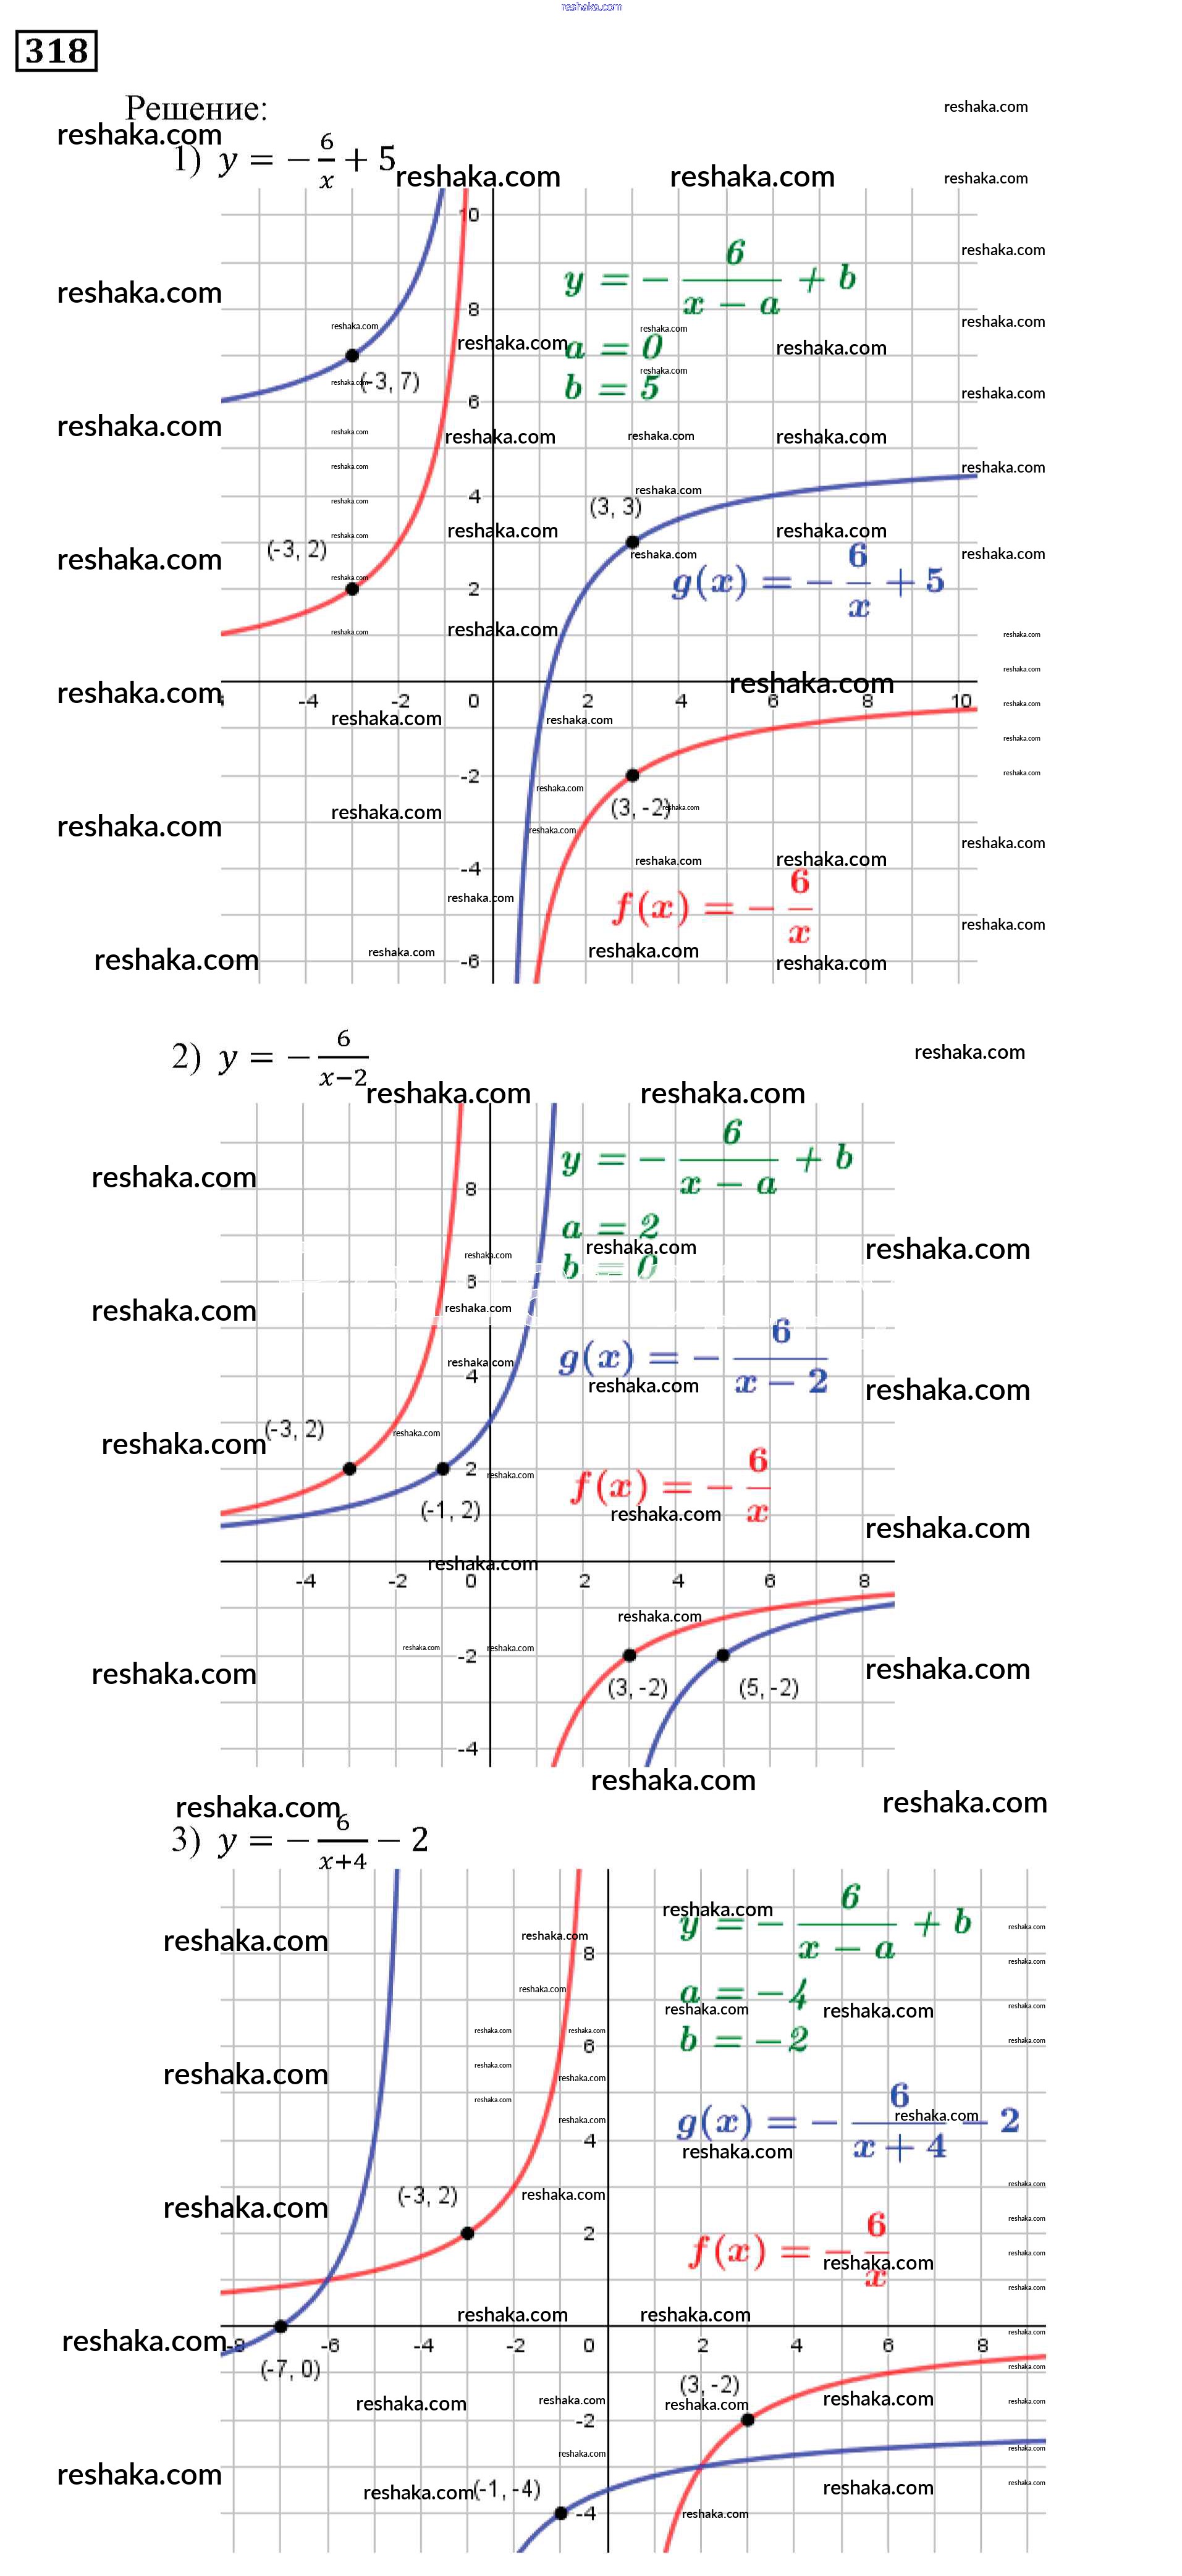 reshaka.com
318
Решение:
1) y = −6/x + 5
y = − 6/(x − a) + b
a = 0
b = 5
(-3, 7)
(3, 3)
(-3, 2)
g(x) = − 6/x + 5
(3, -2)
f(x) = − 6/x
10
8
6
4
2
-4 -2 0 2 4 6 8 10
-2
-4
-6
reshaka.com
2) y = −6/(x−2)
y = − 6/(x − a) + b
a = 2
b = 0
g(x) = − 6/(x − 2)
(-3, 2)
f(x) = − 6/x
(-1, 2)
(3, -2) (5, -2)
8
6
4
2
-4 -2 0 2 4 6 8
-2
-4
reshaka.com
3) y = −6/(x+4) − 2
y = − 6/(x − a) + b
a = −4
b = −2
g(x) = − 6/(x + 4) − 2
(-3, 2)
f(x) = − 6/x
(-7, 0)
(3, -2)
(-1, -4)
8
6
4
2
-8 -6 -4 -2 0 2 4 6 8
-2
-4
reshaka.com